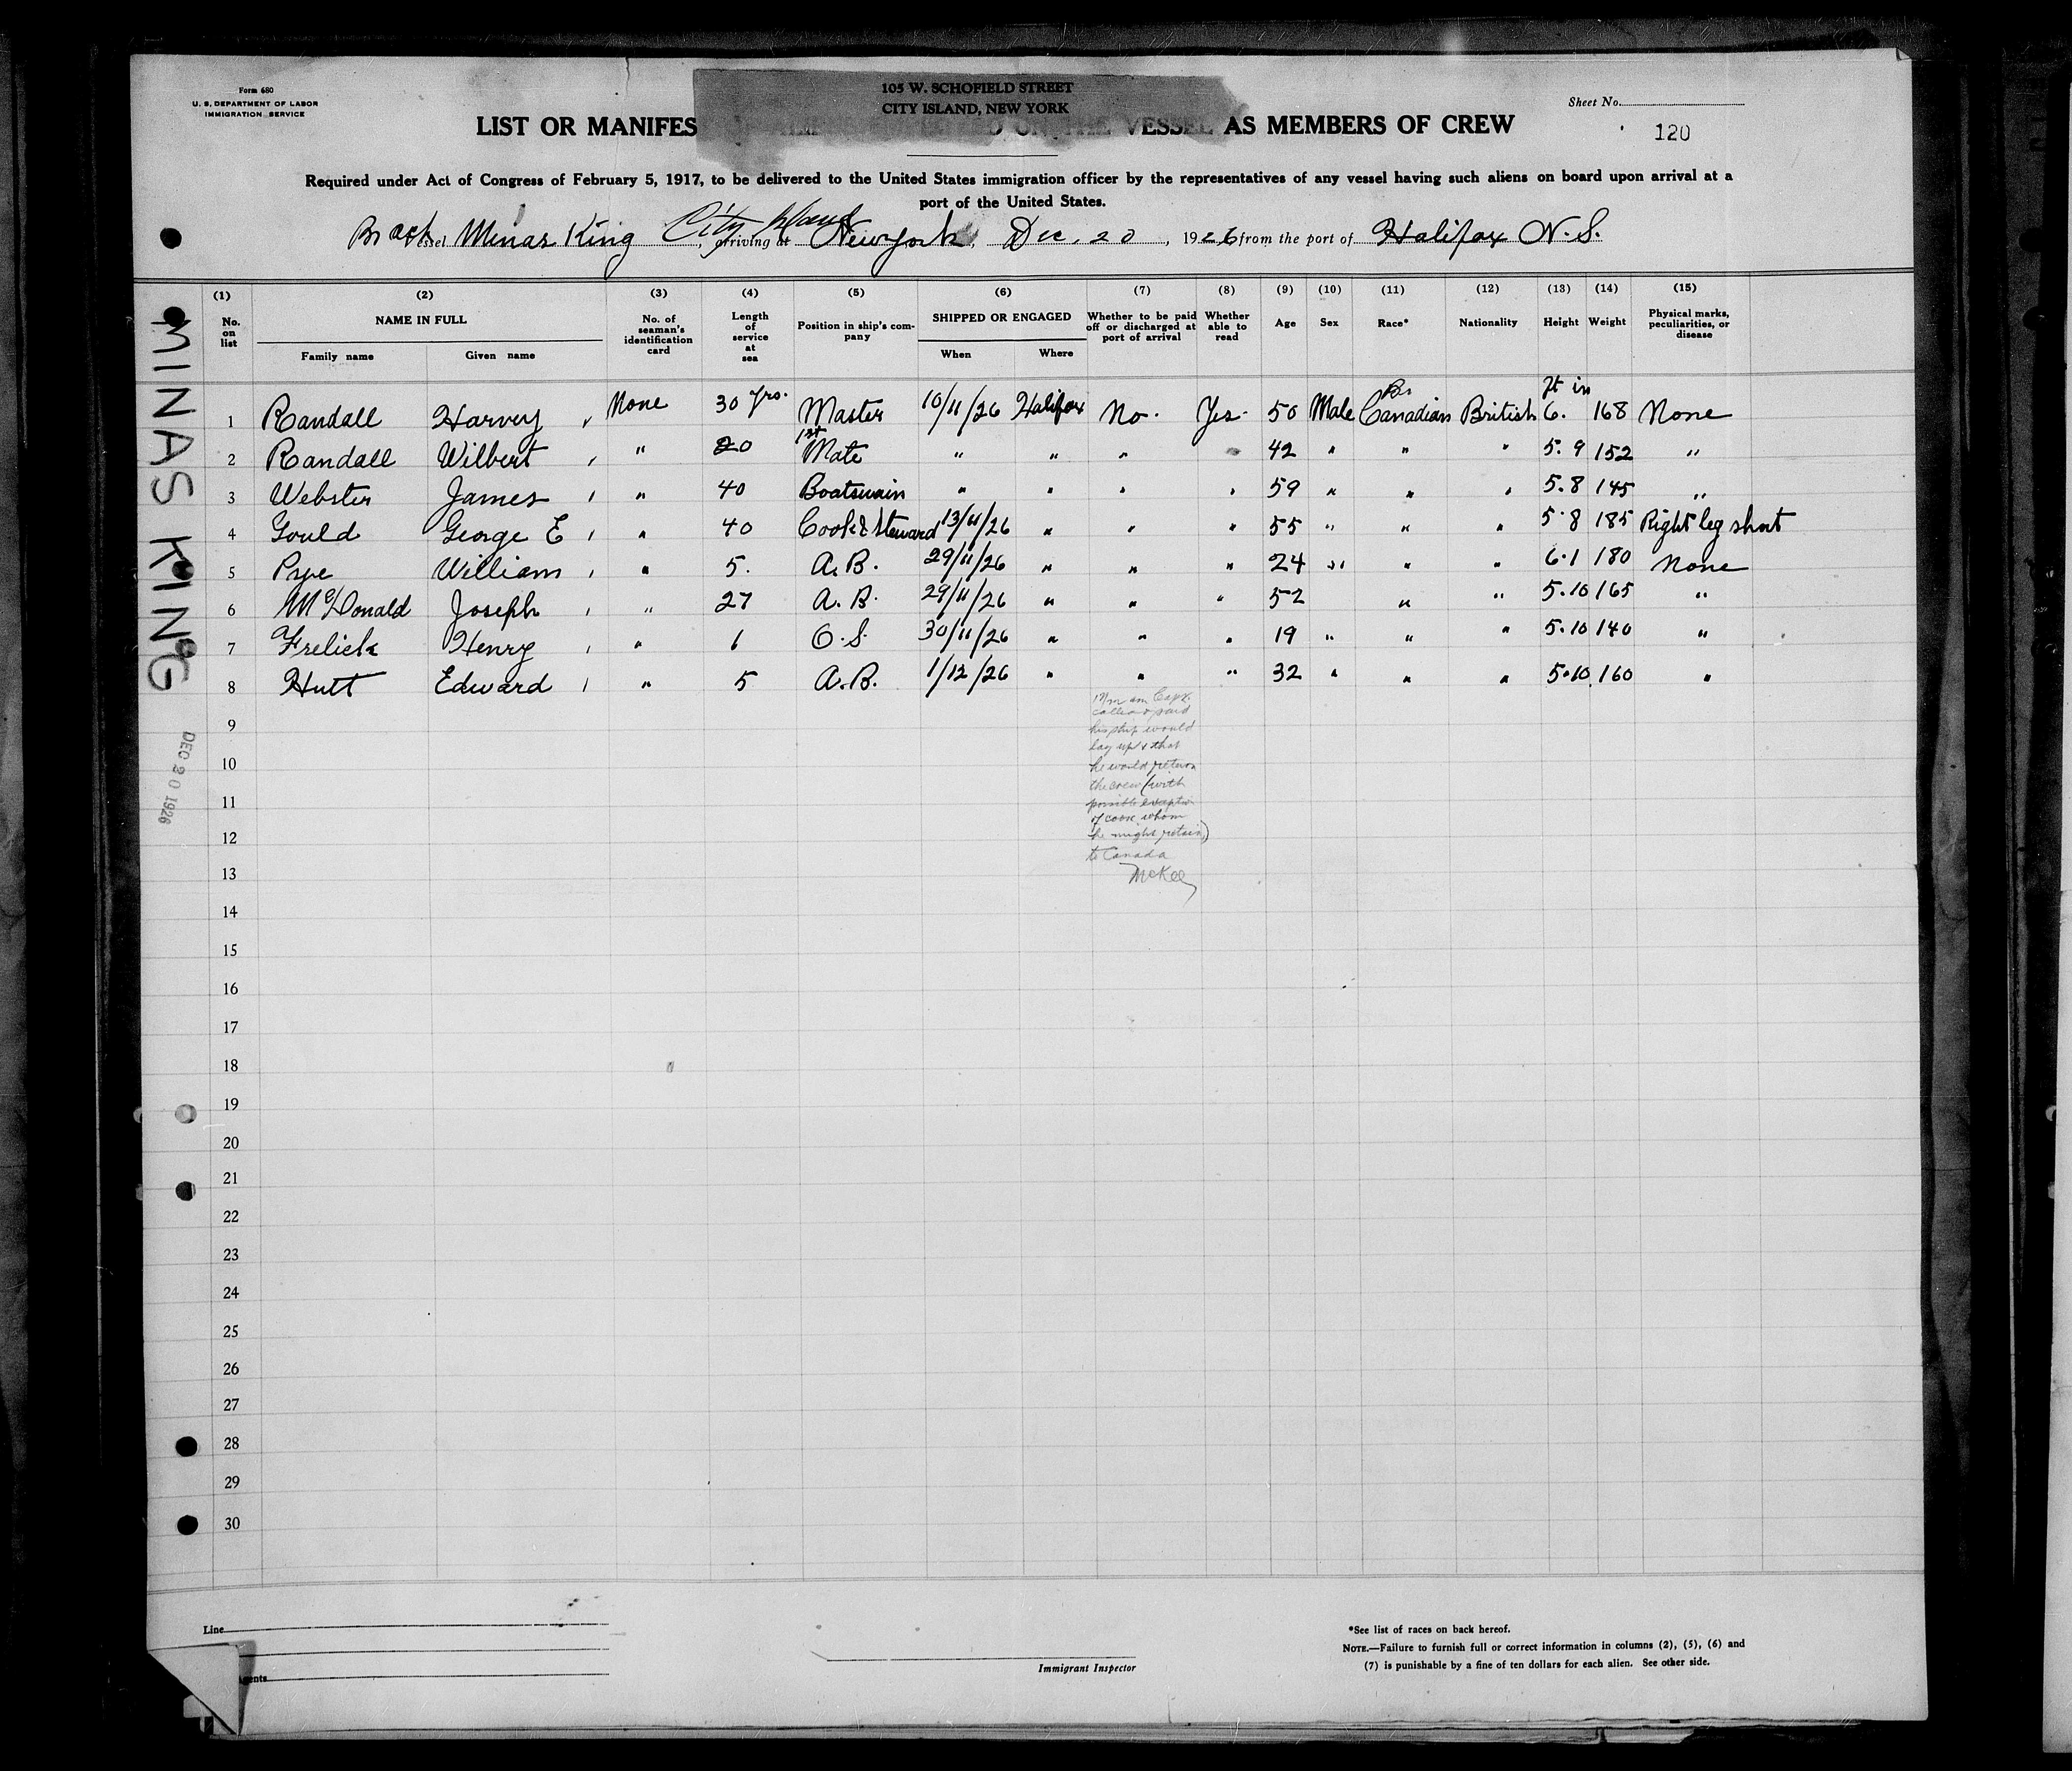 Form 680
U. S. DEPARTMENT OF LABOR
IMMIGRATION SERVICE
105 W. SCHOFIELD STREET
CITY ISLAND, NEW YORK
Sheet No.
120
LIST OR MANIFES VESSEL AS MEMBERS OF CREW
Required under Act of Congress of February 5, 1917, to be delivered to the United States immigration officer by the representatives of any vessel having such aliens on board upon arrival at a
port of the United States.
Vessel Minas King, arriving at City Island New York, Dec. 20, 1926 from the port of Halifax N.S.
(1) (2) (3) (4) (5) (6) (7) (8) (9) (10) (11) (12) (13) (14) (15)
No. on list NAME IN FULL Family name Given name No. of seaman's identification card Length of service at sea Position in ship's company SHIPPED OR ENGAGED When Where Whether to be paid off or discharged at port of arrival Whether able to read Age Sex Race* Nationality Height Weight Physical marks, peculiarities, or disease
ft in
1 Randall Harvey None 30 yrs. Master 10/11/26 Halifax No. Yes. 50 Male Canadian British 6. 168 None
2 Randall Wilbert " 20 1st Mate " " " " 42 " " " 5. 9 152 "
3 Webster James " 40 Boatswain " " " " 59 " " " 5.8 145 "
4 Gould George E " 40 Cook & Steward 13/11/26 " " " 55 " " " 5.8 185 Right leg short
5 Pye William " 5. A.B. 29/11/26 " " " 24 " " " 6.1 180 None
6 McDonald Joseph " 27 A.B. 29/11/26 " " " 52 " " 5.10 165 "
7 Frelick Henry " 1 O.S. 30/11/26 " " " 19 " " " 5.10 140 "
8 Hutt Edward " 5 A.B. 1/12/26 " " " 32 " " " 5.10 160 "
Capt.
called & said
his ship would
lay up & that
he would return
the crew (with
possible exception
of cook whom
he might retain)
to Canada
McKee
9
10
11
12
13
14
15
16
17
18
19
20
21
22
23
24
25
26
27
28
29
30
MINAS KING
DEC 20 1926
Line
Agents
Immigrant Inspector
*See list of races on back hereof.
NOTE.—Failure to furnish full or correct information in columns (2), (5), (6) and
(7) is punishable by a fine of ten dollars for each alien. See other side.